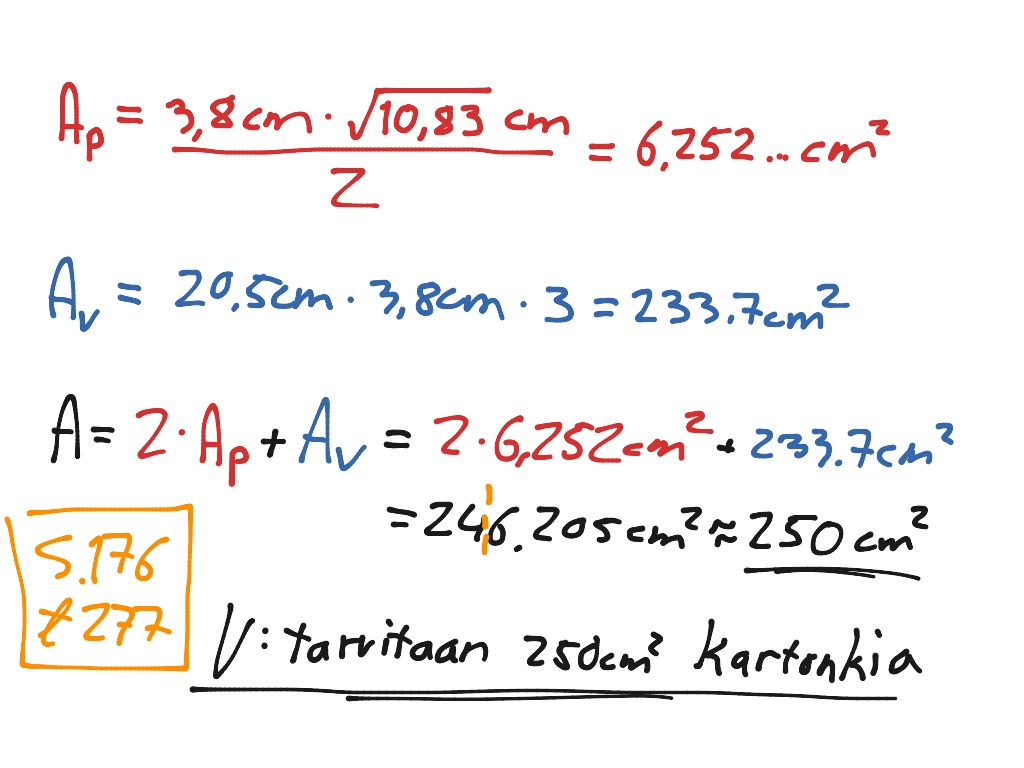 Ap = 3,8cm · √10,83 cm / 2 = 6,252... cm²
Av = 20.5cm · 3,8cm · 3 = 233.7cm²
A = 2 · Ap + Av = 2 · 6,252cm² + 233.7cm²
= 246.205cm² ≈ 250 cm²
S.176
t 277
V: tarvitaan 250cm² kartonkia